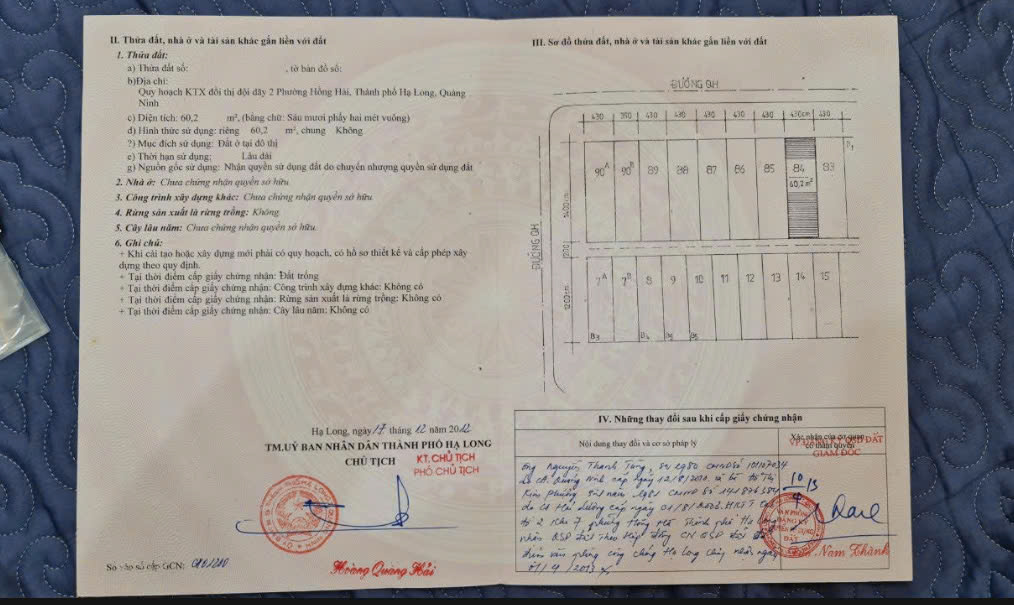 II. Thửa đất, nhà ở và tài sản khác gắn liền với đất
1. Thửa đất:
a) Thửa đất số: , tờ bản đồ số:
b)Địa chỉ:
Quy hoạch KTX đồi thị đội dãy 2 Phường Hồng Hải, Thành phố Hạ Long, Quảng
Ninh
c) Diện tích: 60,2 m², (bằng chữ: Sáu mươi phẩy hai mét vuông)
d) Hình thức sử dụng: riêng 60,2 m², chung Không
?) Mục đích sử dụng: Đất ở tại đô thị
e) Thời hạn sử dụng; Lâu dài
g) Nguồn gốc sử dụng: Nhận quyền sử dụng đất do chuyển nhượng quyền sử dụng đất
2. Nhà ở: Chưa chứng nhận quyền sở hữu
3. Công trình xây dựng khác: Chưa chứng nhận quyền sở hữu
4. Rừng sản xuất là rừng trồng: Không
5. Cây lâu năm: Chưa chứng nhận quyền sở hữu
6. Ghi chú:
+ Khi cải tạo hoặc xây dựng mới phải có quy hoạch, có hồ sơ thiết kế và cấp phép xây
dựng theo quy định.
+ Tại thời điểm cấp giấy chứng nhận: Đất trống
+ Tại thời điểm cấp giấy chứng nhận: Công trình xây dựng khác: Không có
+ Tại thời điểm cấp giấy chứng nhận: Rừng sản xuất là rừng trồng: Không có
+ Tại thời điểm cấp giấy chứng nhận: Cây lâu năm: Không có
Hạ Long, ngày 17 tháng 12 năm 2012
TM.UỶ BAN NHÂN DÂN THÀNH PHỐ HẠ LONG
CHỦ TỊCH
KT. CHỦ TỊCH
PHÓ CHỦ TỊCH
Hoàng Quang Hải
Số vào sổ cấp GCN:
III. Sơ đồ thửa đất, nhà ở và tài sản khác gắn liền với đất
ĐƯỜNG QH
430 350 430 430 430 430 430 430cm 430
90A 90B 89 88 87 86 85 84 83
60,2 m²
ĐƯỜNG QH
1400cm
1200
1200cm
7A 7B 8 9 10 11 12 13 14 15
IV. Những thay đổi sau khi cấp giấy chứng nhận
Nội dung thay đổi và cơ sở pháp lý
Xác nhận của cơ quan
có thẩm quyền
VP ĐĂNG KÝ QSD ĐẤT
GIÁM ĐỐC
Ông Nguyễn Thanh Tùng, SN 1980 CMND số
do CA Quảng Ninh cấp ngày 12/8/2010 và bà
Kim Phượng Sinh năm 1981 CMND số
do CA Hải Dương cấp ngày 01/8/2006. HKTT
tổ 2 khu 7, phường Hồng Hà Thành phố Hạ Long
nhận QSD đất theo Hợp đồng CN QSD đất
văn phòng công chứng Hạ Long chứng nhận ngày
01/4/2013
Nam Thành